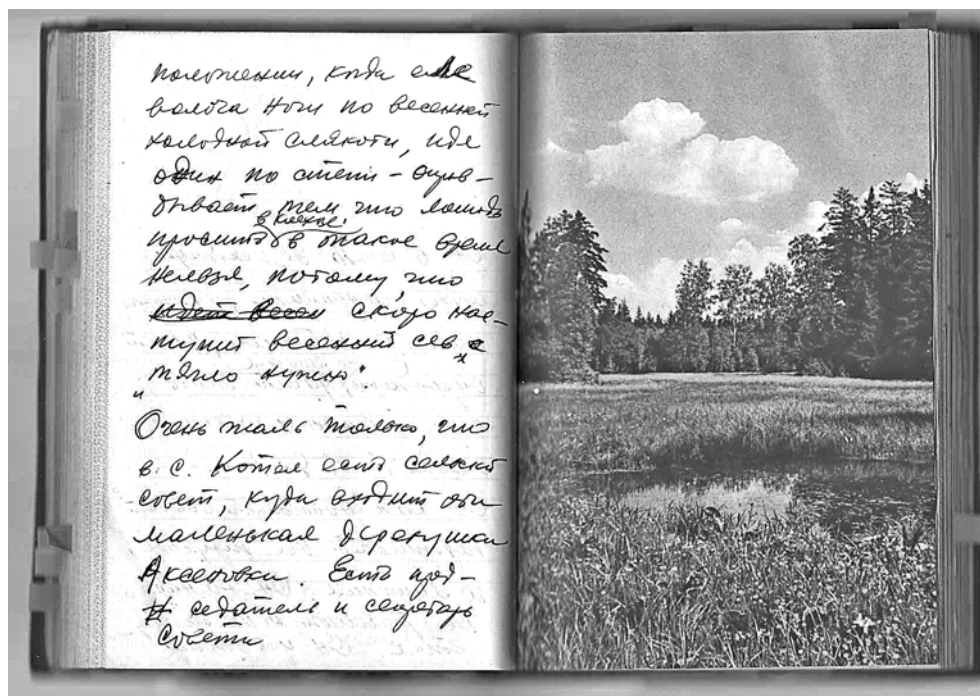 положении, когда еле
волоча ноги по весенней
холодной слякоти, идя
один по степи – оправ-
дывает тем что лошадь
в колхозе
просить в такое время
нельзя, потому, что
идет весен скоро нас-
тупит весенний сев и
тягло нужно"
"Очень жаль только, что
в с. Котол есть сельский
совет, куда входит эти
маленькая деревушка
Аксеновка. Есть пред-
седатель и секретарь
совета